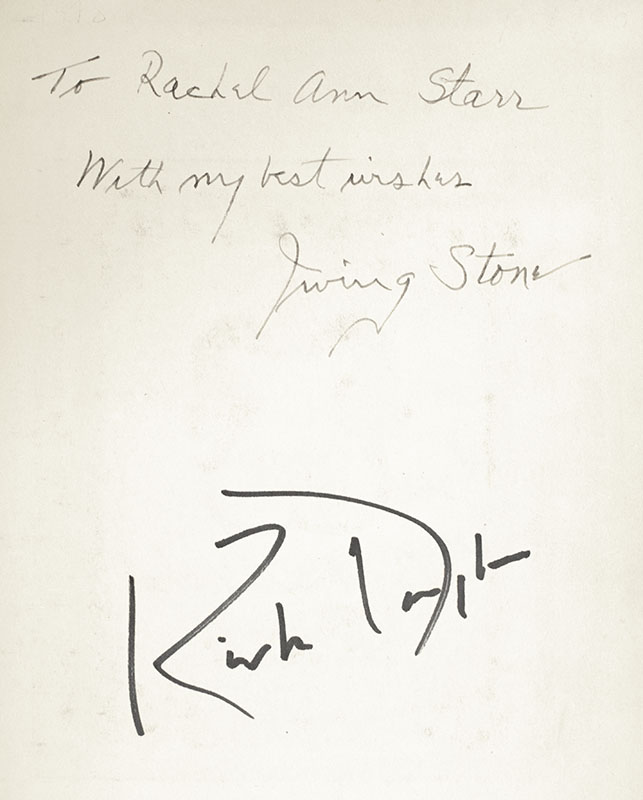 To Rachel Ann Starr
With my best wishes
Irving Stone
Kirk Douglas